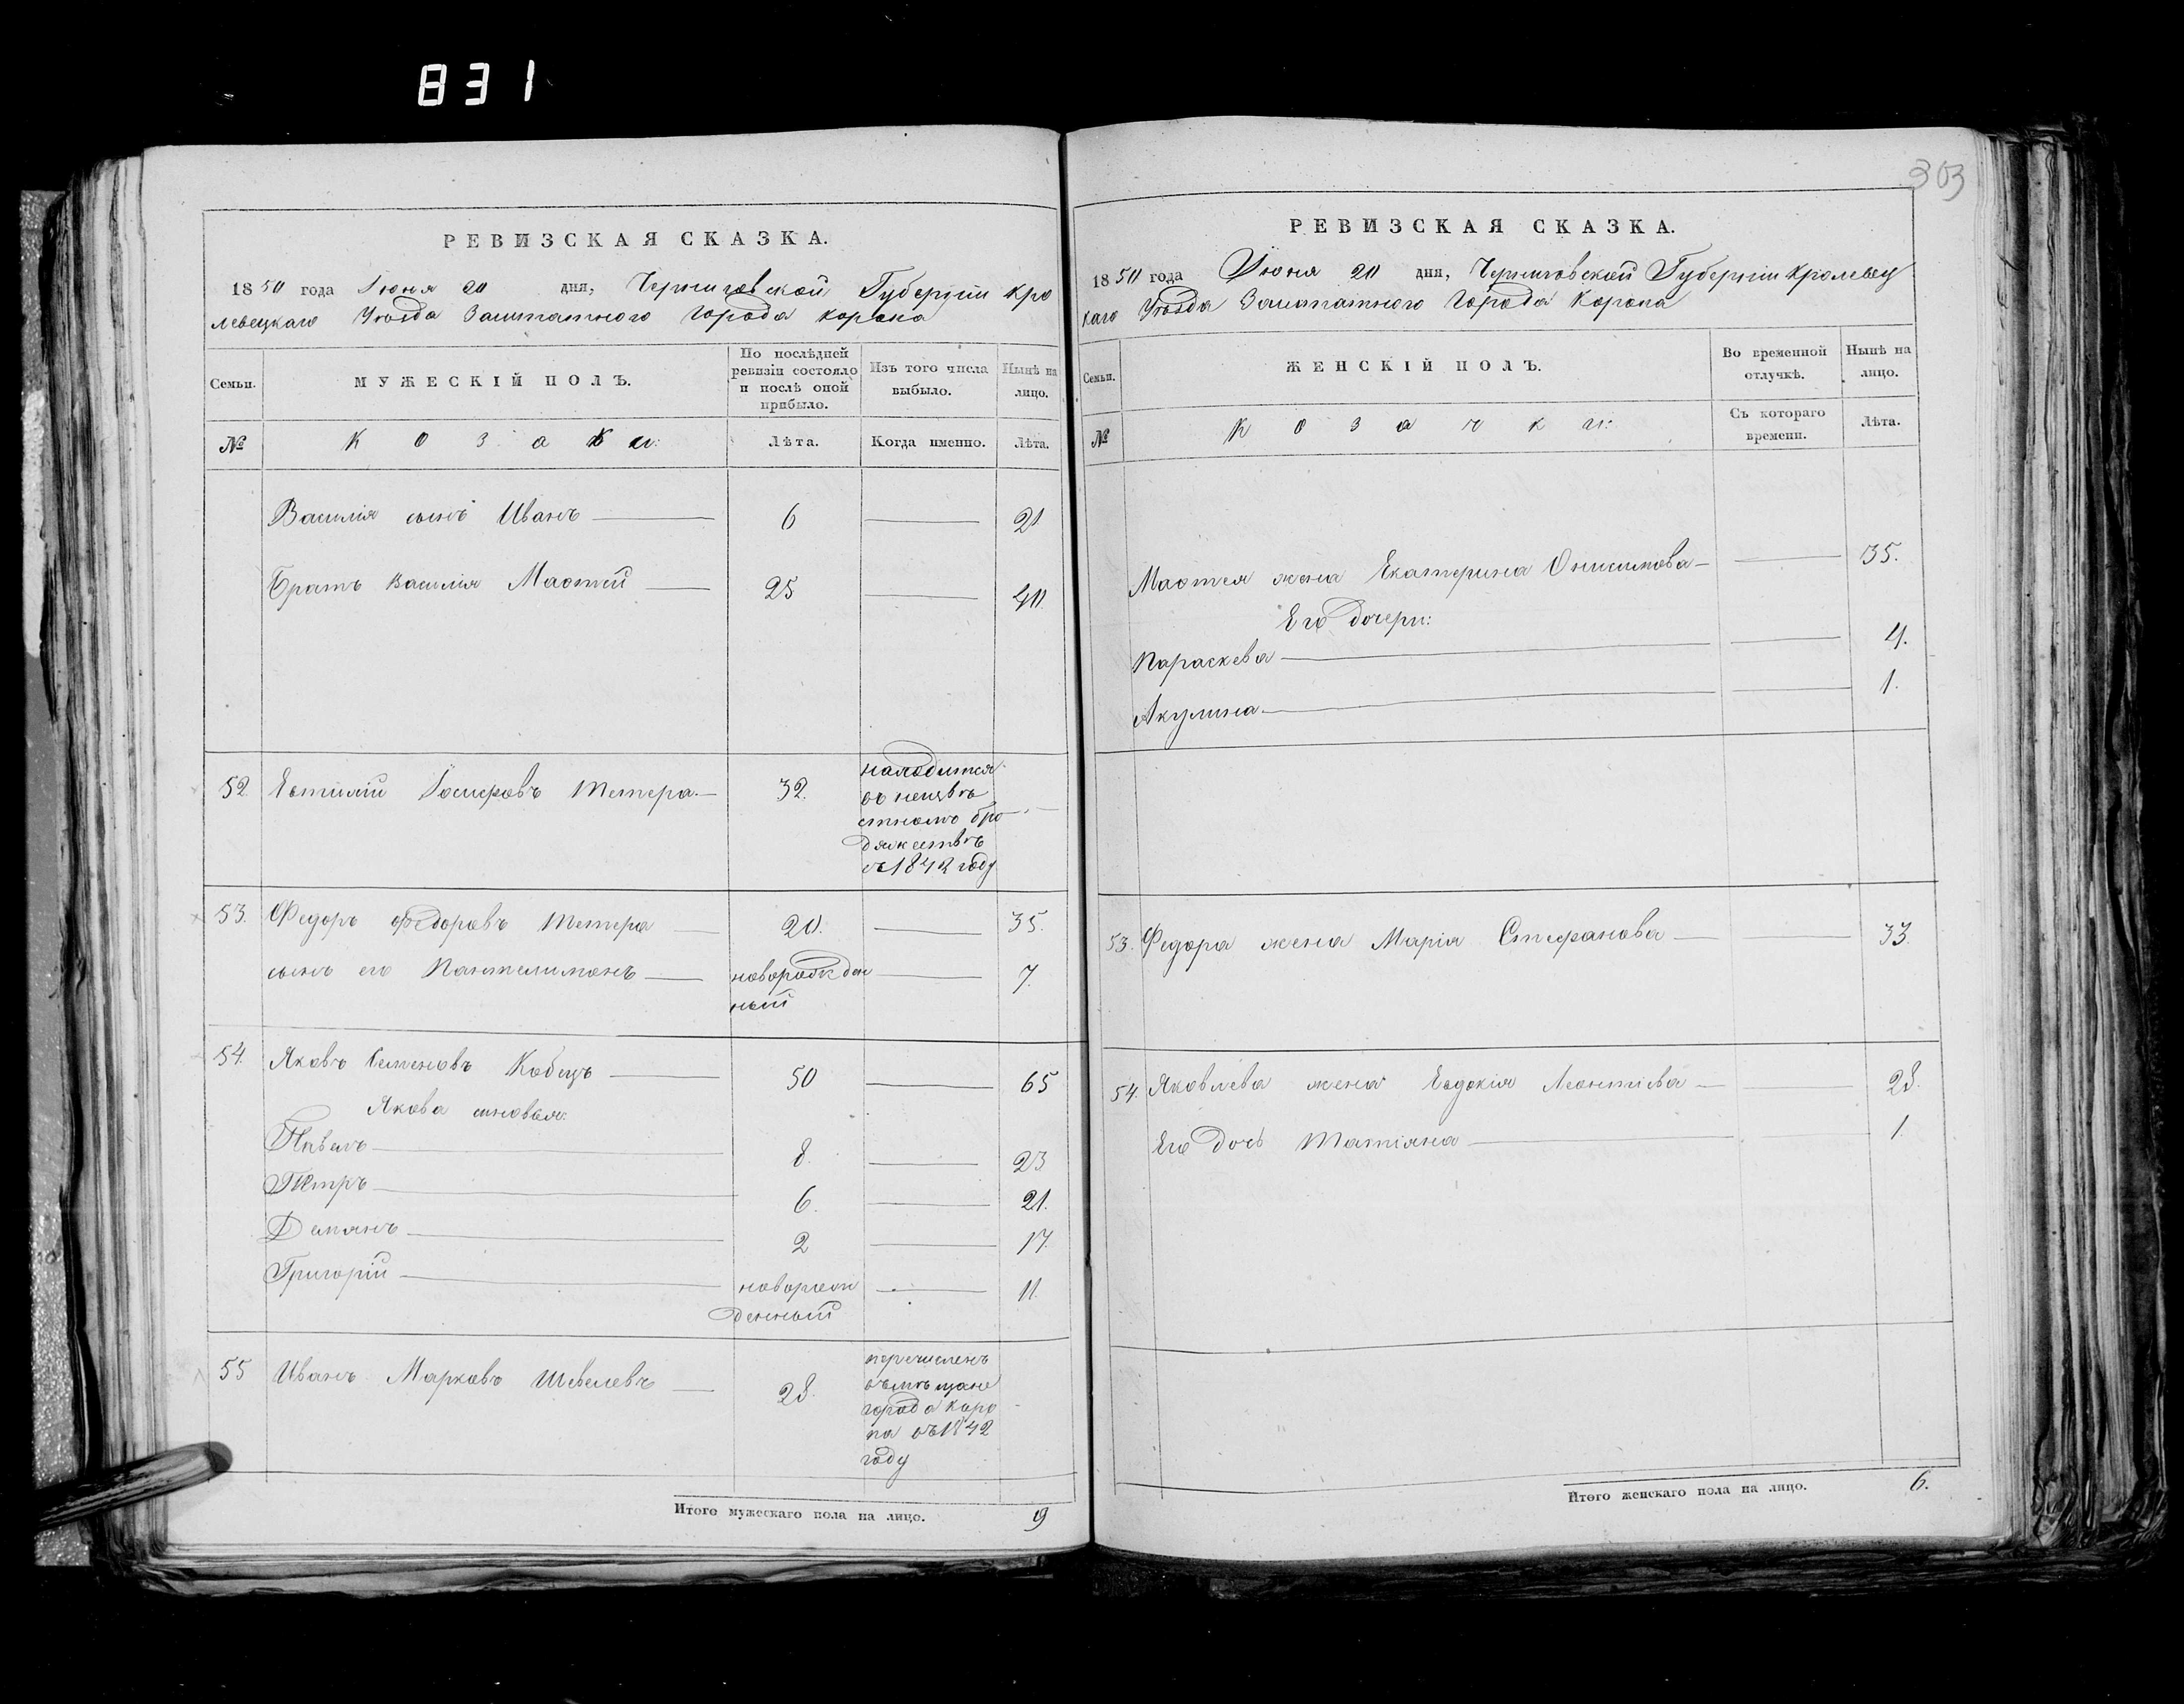 831
РЕВИЗСКАЯ СКАЗКА.
1850 года Іюня 20 дня, Черниговской Губерніи Кро
левецкаго Уѣзда Заштатного Города Коропа
Семьи.
МУЖЕСКІЙ ПОЛЪ.
По послѣдней ревизіи состояло и послѣ оной прибыло.
Изъ того числа выбыло.
Нынѣ на лицо.
№
Козаки:
Лѣта.
Когда именно.
Лѣта.
Василія сынъ Иванъ 6 21
Братъ Василія Мафтей 25 40.
52 Евтихій Іосифовъ Тетера 32.
находится
въ неизвѣ
стномъ бро
дяжествѣ
съ 1842 году
53. Федоръ Федоровъ Тетера 20. 35.
сынъ его Пантелимонъ новорожден 7.
ный
54. Яковъ Семеновъ Кобецъ 50 65
Якова сыновья:
Павелъ 8. 23
Петръ 6. 21.
Демянъ 2 17.
Григорій новорож 11.
денный
55 Иванъ Марковъ Шевелевъ 28.
перечисленъ
въ мѣщане
города Коро
па въ 1842
году
Итого мужескаго пола на лицо. 9
303
РЕВИЗСКАЯ СКАЗКА.
1850 года Іюня 20 дня, Черниговской Губерніи Кролевец
каго Уѣзда Заштатного Города Коропа
Семьи.
ЖЕНСКІЙ ПОЛЪ.
Во временной отлучкѣ.
Нынѣ на лицо.
№
Козачки:
Съ котораго времени.
Лѣта.
Мафтея жена Екатерина Онисимова 35.
Его дочери:
Параскева 4.
Акулина 1.
53. Федора жена Марія Стефанова 33.
54. Яковлева жена Евдокія Леонтіева 28.
Его дочь Татіяна 1.
Итого женскаго пола на лицо. 6.